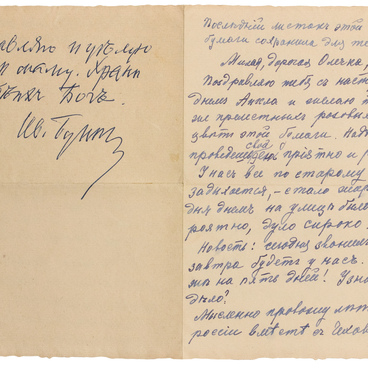 авляю и целую
и маму. Храни
Богъ.
Ив. Бунин
Последнiй листокъ этой
бумаги сохранила для те
Милая, дорогая Олечка,
Поздравляю тебя съ наст
днемъ Ангела и желаю т
же прелестныхъ розовы
цвѣтъ этой бумаги. Над
проведешь свой день прiятно и
У насъ все по старому
задыхается, – стало жар
дня днемъ на улицѣ было
роятно, дуло сироко.
Новость: сегодня звонил
завтра будетъ у насъ.
на пять дней! Узна
было?
Мысленно провожу лѣт
россiи вмѣстѣ съ Чехов